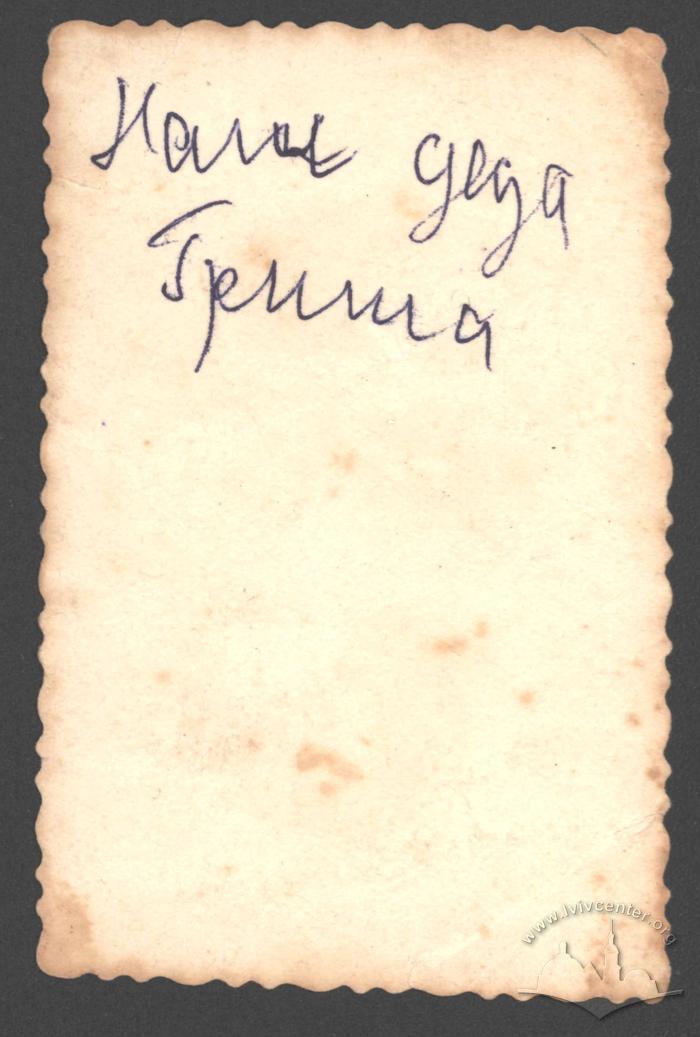 Наш деда
Гриша
www.lvivcenter.org